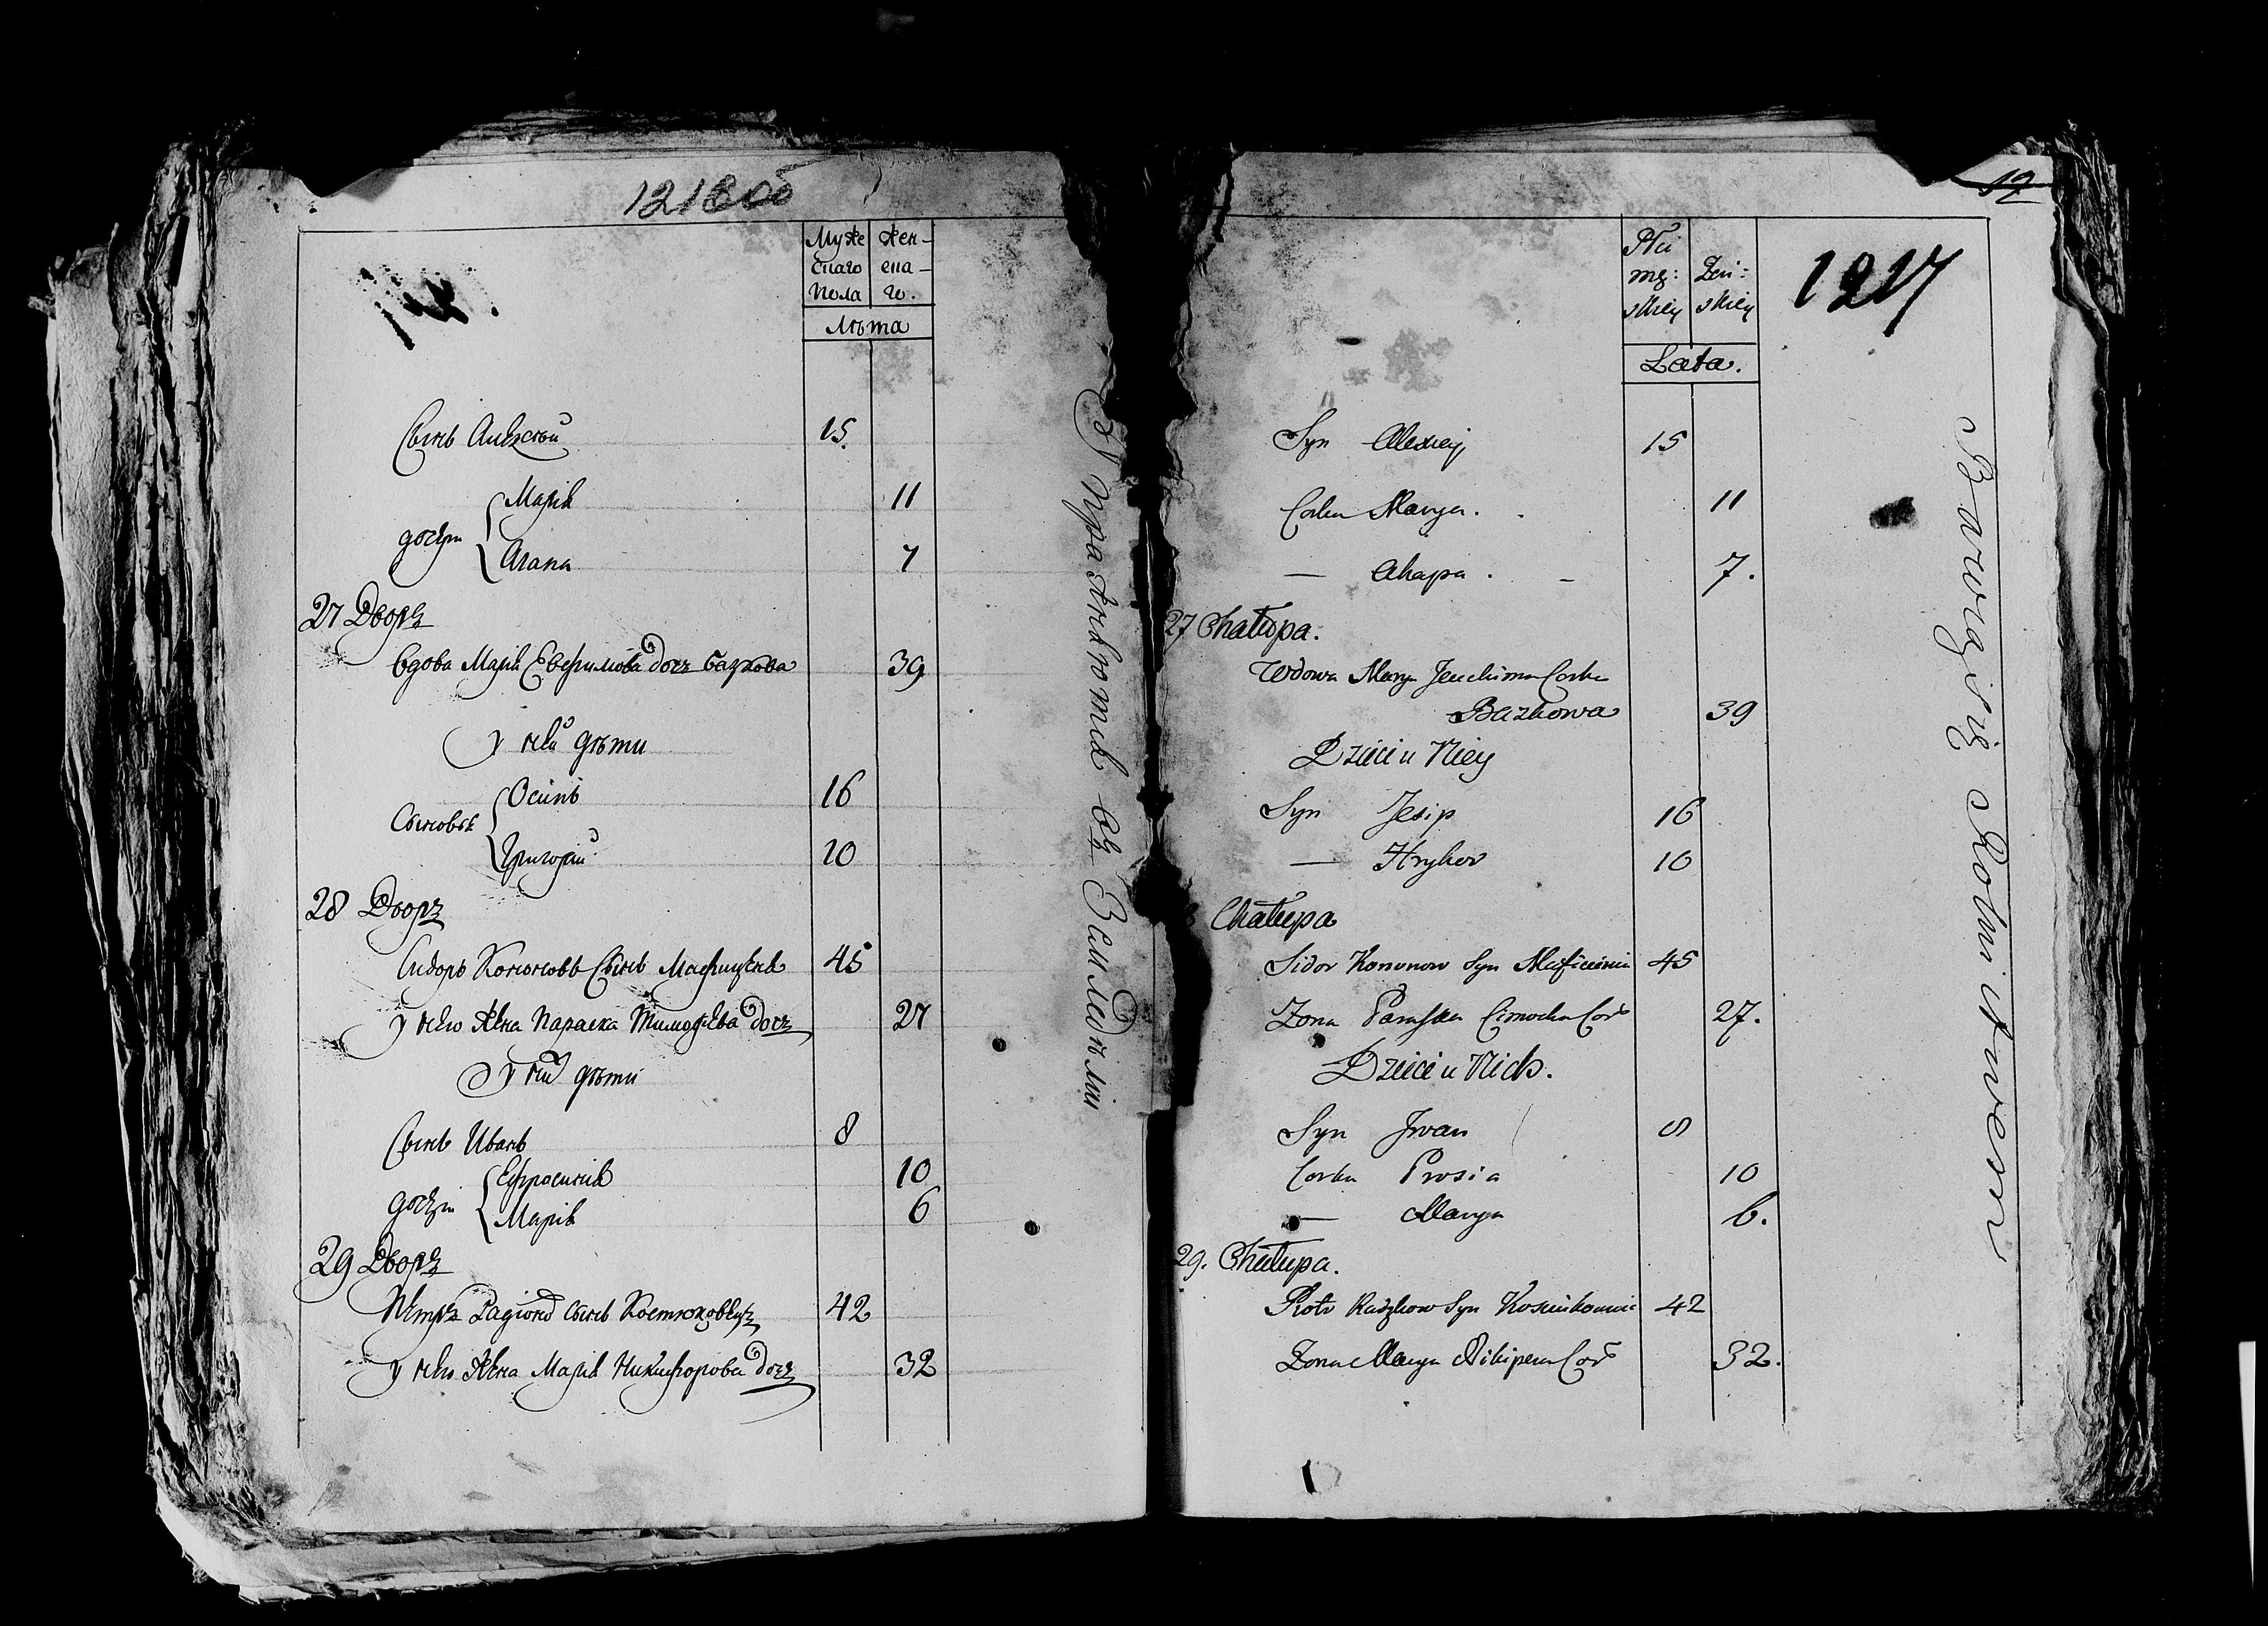 1216об
Муже Жен-
скаго ска-
Пола го.
Лѣта
Сынъ Алексѣй 15.
дочери Марія 11
Агапа 7
27 Дворъ
Вдова Марія Евфимова дочь Базкова 39
у ней дѣти
Сыновья Осипъ 16
Григорій 10
28 Дворъ
Сидоръ Кононовъ Сынъ
45
у него Жена Параска Тимофѣева дочь 27
у них дѣти
Сынъ Иванъ 8
дочери Ефросинія 10
Марія 6
29 Дворъ
Петръ Радіоновъ Сынъ Костюковецъ 42
у него Жена Марія Никифорова дочь 32
Упражняются въ Земледѣліи
19
1217
Płci
mę: Żeń:
skiey skiey
Lata.
Syn Alexiey 15
Corka Marya. 11
— Ahapa. 7.
27 Chałupa.
Wdowa Marya Jeuchima Corka
Bazkowa 39
Dzieci u Niey
Syn Jesip 16
— Hryhor 10
Chałupa
Sidor Kononow Syn
45
Żona Paraska Cimocha Cor 27.
Dzieci u Nich.
Syn Jwan 8
Corka Prosia 10
— Marya 6.
29. Chałupa.
Piotr Radzkow Syn
42
Żona Marya Nikipera Cor 32.
Bawią się Rolnictwem